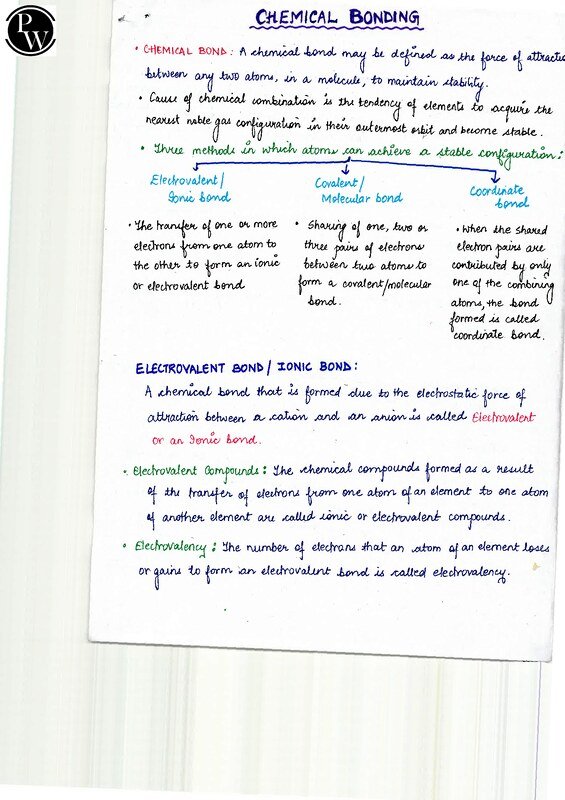 PW
CHEMICAL BONDING
• CHEMICAL BOND: A chemical bond may be defined as the force of attractio
between any two atoms, in a molecule, to maintain stability.
• Cause of chemical combination is the tendency of elements to acquire the
nearest noble gas configuration in their outermost orbit and become stable.
• Three methods in which atoms can achieve a stable configuration:
Electrovalent/
Ionic bond
• The transfer of one or more
electrons from one atom to
the other to form an ionic
or electrovalent bond
Covalent/
Molecular bond
• Sharing of one, two or
three pairs of electrons
between two atoms to
form a covalent/molecular
bond.
Coordinate
bond
• When the shared
electron pairs are
contributed by only
one of the combining
atoms, the bond
formed is called
coordinate bond.
ELECTROVALENT BOND/ IONIC BOND:
A chemical bond that is formed due to the electrostatic force of
attraction between a cation and an anion is called Electrovalent
or an Ionic bond.
• Electrovalent Compounds: The chemical compounds formed as a result
of the transfer of electrons from one atom of an element to one atom
of another element are called ionic or electrovalent compounds.
• Electrovalency: The number of electrons that an atom of an element loses
or gains to form an electrovalent bond is called electrovalency.